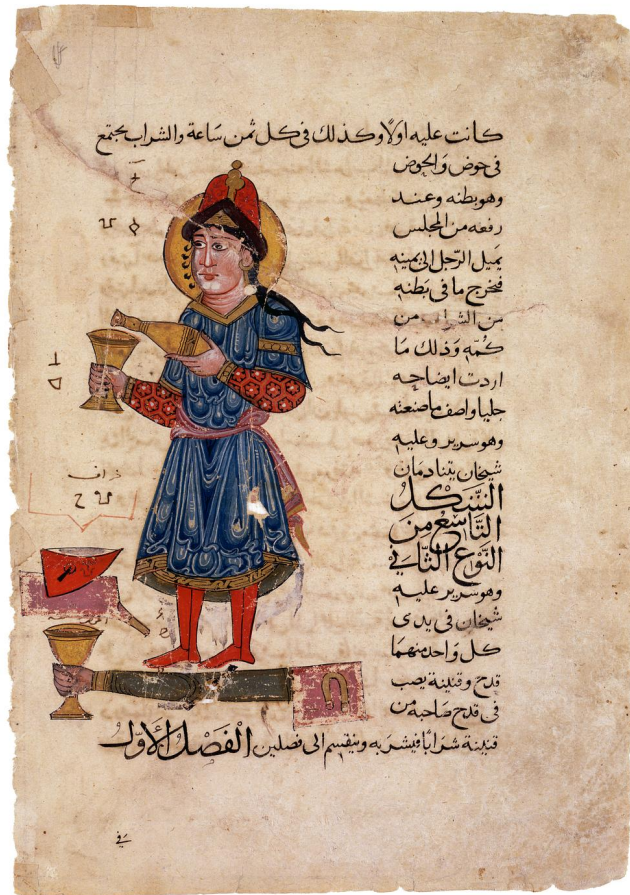 كانت عليه اولًا وكذلك في كل ثمن ساعة والشراب يجتمع
في حوض والحوض
وهو بطنه وعند
رفعه من المجلس
يميل الرجل الى يمينه
فيخرج ما في بطنه
من الشراب من
كمّه وذلك ما
اردت ايضاحه
جليا واصف ما صنعته
وهو سرير وعليه
شيخان يتنادمان
الشكل
التاسع من
النوع الثاني
وهو سرير عليه
شيخان في يدى
كل واحد منهما
قدح وقنينة يصب
في قدح صاحبه من
قنينة شرابًا فيشربه وينقسم الى فصلين الفصل الأول
في